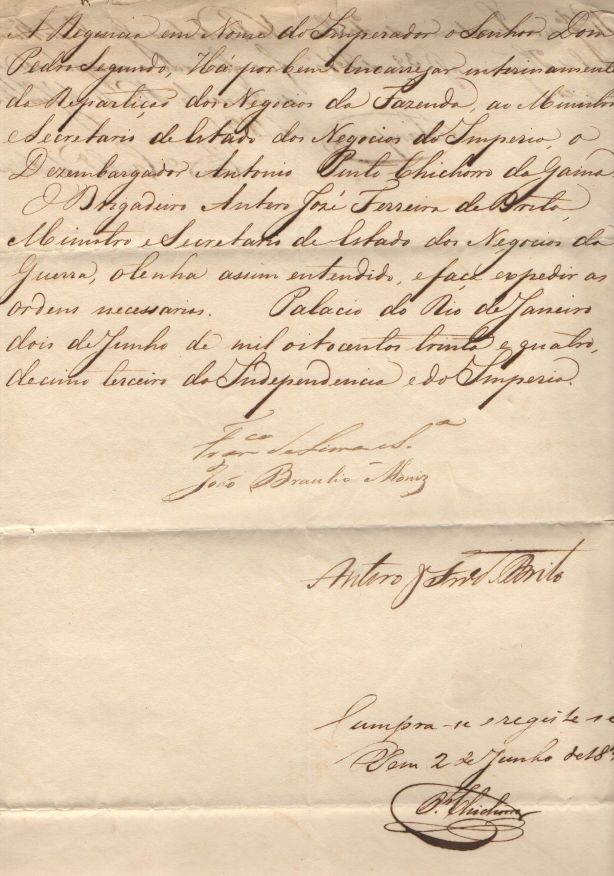 A Regencia em Nome do Imperador o Senhor Dom
Pedro Segundo, Há por bem Encarregar interinamente
da Repartição dos Negocios da Fazenda, ao Ministro
e Secretario de Estado dos Negocios do Imperio, o
Dezembargador Antonio Pinto Chichorro da Gama.
O Brigadeiro Antero José Ferreira de Brito,
Ministro e Secretario de Estado dos Negocios da
Guerra, o tenha assim entendido, e faça expedir as
ordens necessarias. Palacio do Rio de Janeiro
dois de Junho de mil oitocentos trinta e quatro,
decimo terceiro da Independencia e do Imperio.
Franco de Lima e Sa
João Braulio Moniz
Antero J Ferra d Brito
Cumpra-se e registe-se
em 2 de Junho de 18
Chichorro